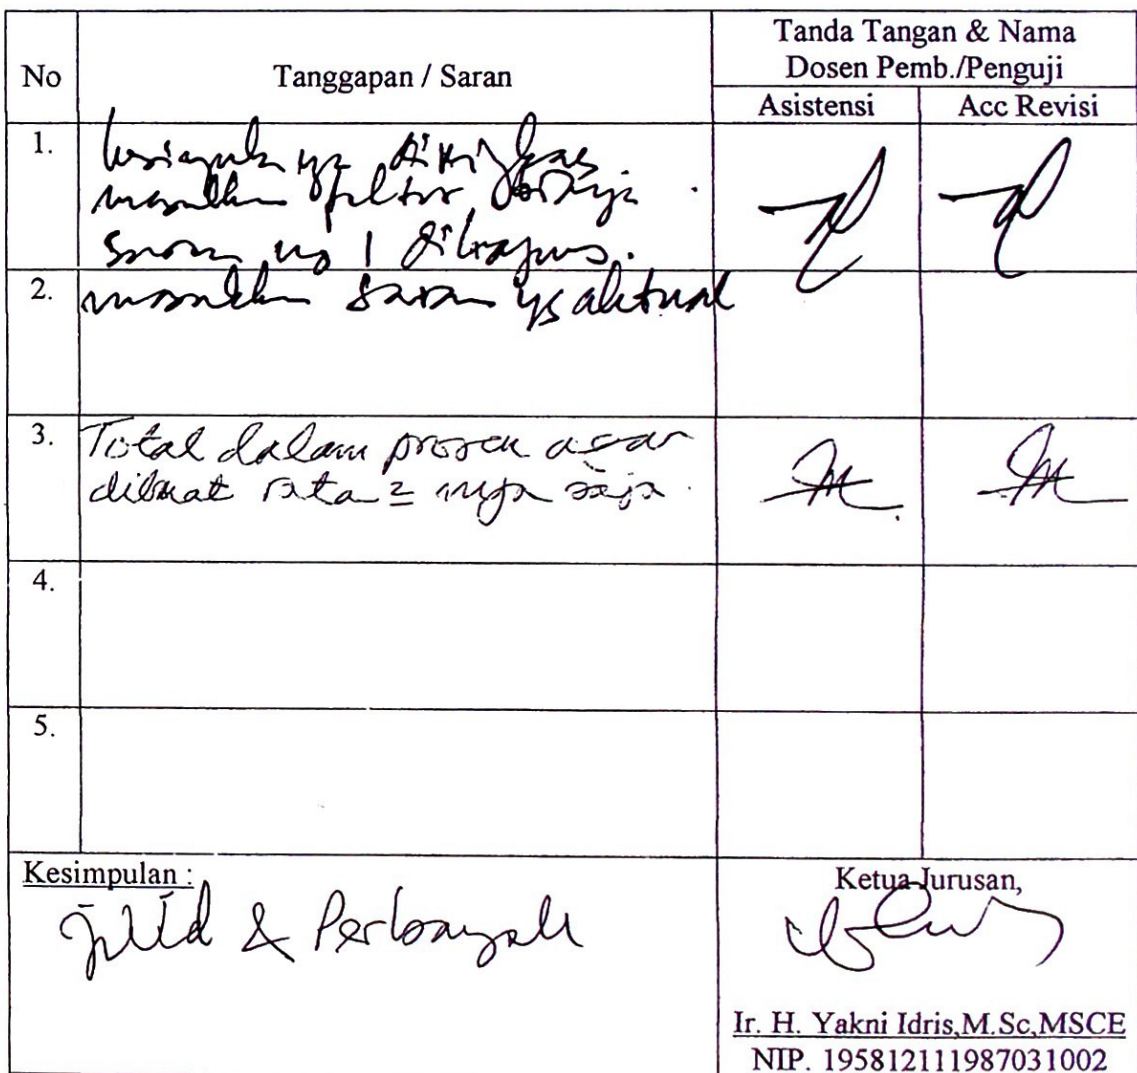 No
Tanggapan / Saran
Tanda Tangan & Nama
Dosen Pemb./Penguji
Asistensi
Acc Revisi
1.
diringkas
masukkan filter
saran no 1 dihapus.
2.
masukkan saran yg aktual
3.
Total dalam prosen agar
dibuat rata = nya saja.
4.
5.
Kesimpulan :
Jilid & Perbanyak
Ketua Jurusan,
Ir. H. Yakni Idris,M.Sc,MSCE
NIP. 195812111987031002